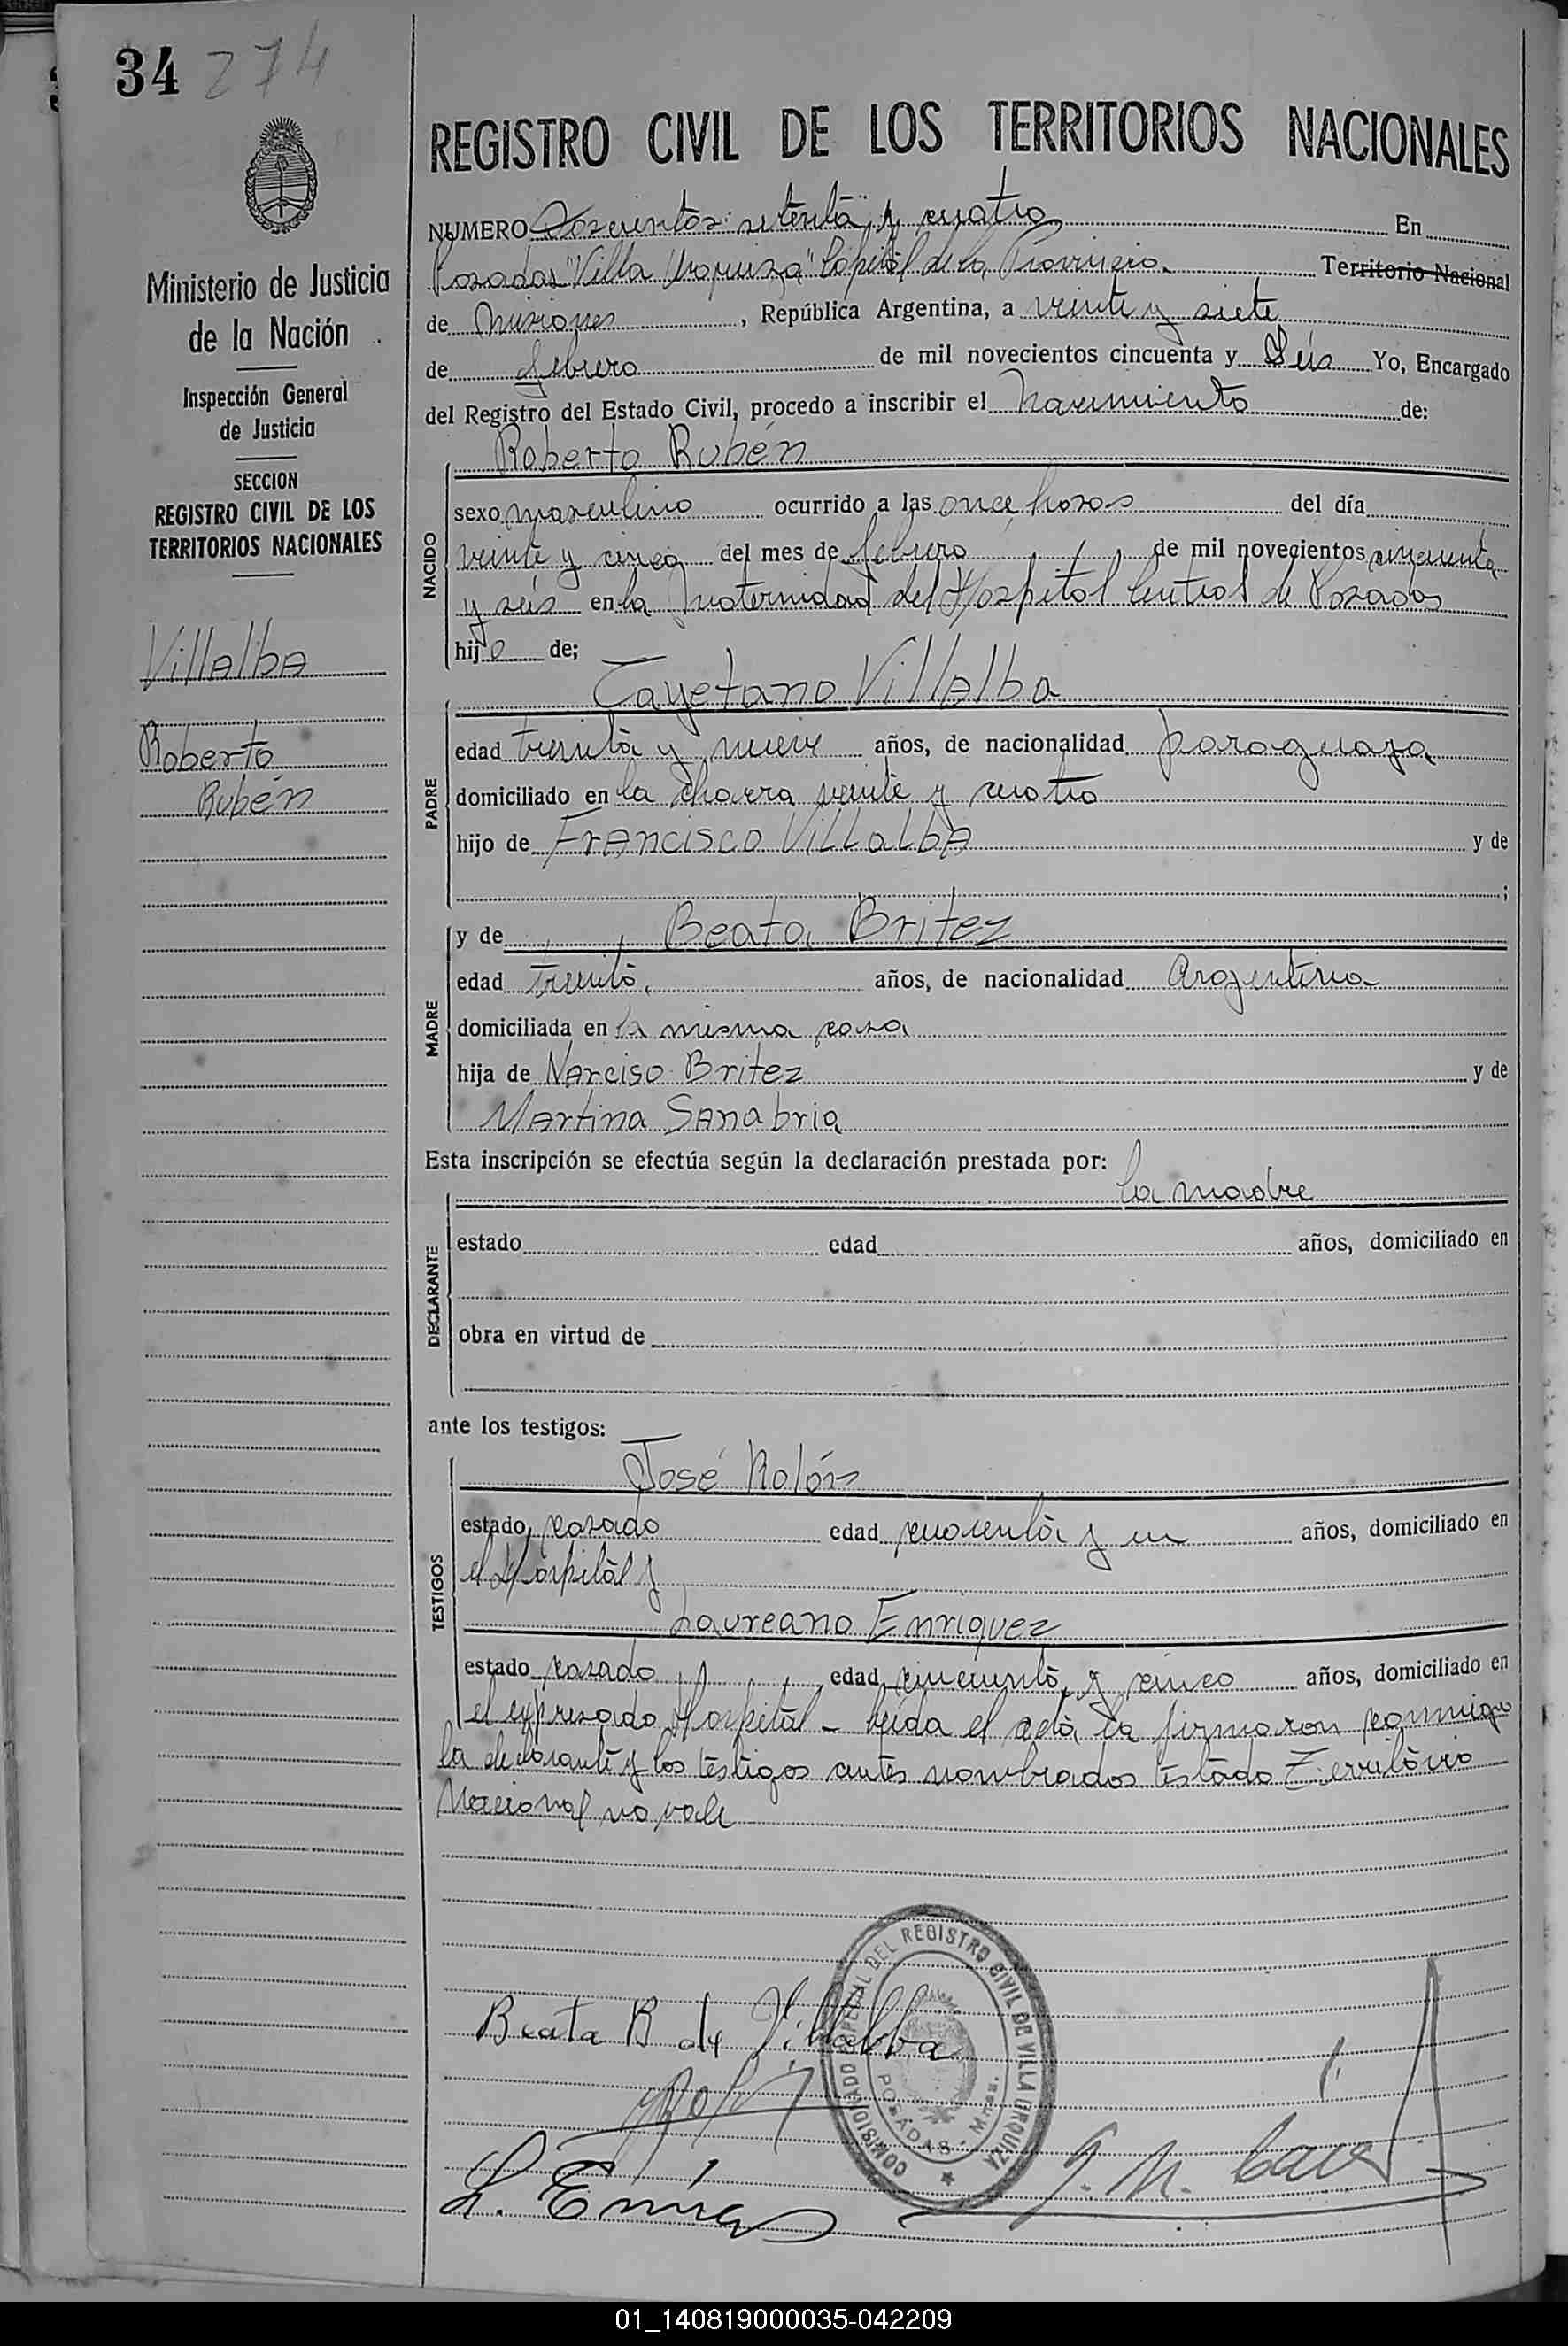 34 274
REGISTRO CIVIL DE LOS TERRITORIOS NACIONALES
Ministerio de Justicia
de la Nación
Inspección General
de Justicia
SECCION
REGISTRO CIVIL DE LOS
TERRITORIOS NACIONALES
Villalba
Roberto
Rubén
NUMERO Doscientos setenta y cuatro En
Posadas "Villa Urquiza" Capital de la Provincia. Territorio Nacional
de Misiones, República Argentina, a veinte y siete
de febrero de mil novecientos cincuenta y Seis Yo, Encargado
del Registro del Estado Civil, procedo a inscribir el nacimiento de:
Roberto Rubén
NACIDO
sexo masculino ocurrido a las once horas del día
veinte y cinco del mes de febrero de mil novecientos cincuenta
y seis en la Maternidad del Hospital Central de Posadas
hijo de;
Cayetano Villalba
PADRE
edad treinta y nueve años, de nacionalidad paraguaya
domiciliado en la chacra veinte y cuatro
hijo de Francisco Villalba y de
;
y de Beata Britez
MADRE
edad treinta años, de nacionalidad Argentina
domiciliada en la misma casa
hija de Narciso Britez y de
Martina Sanabria
Esta inscripción se efectúa según la declaración prestada por:
la madre
DECLARANTE
estado edad años, domiciliado en
obra en virtud de
ante los testigos:
José Rolón
TESTIGOS
estado casado edad cuarenta y un años, domiciliado en
el Hospital y
Laureano Enriquez
estado casado edad cincuenta y cinco años, domiciliado en
el expresado Hospital - leida el acta la firmaron conmigo
la declarante y los testigos antes nombrados testado Territorio
Nacional no vale
Beata B de Villalba
COMISIONADO ESPECIAL DEL REGISTRO CIVIL DE VILLA URQUIZA
POSADAS - Mnes.
L. Enriq
01_140819000035-042209